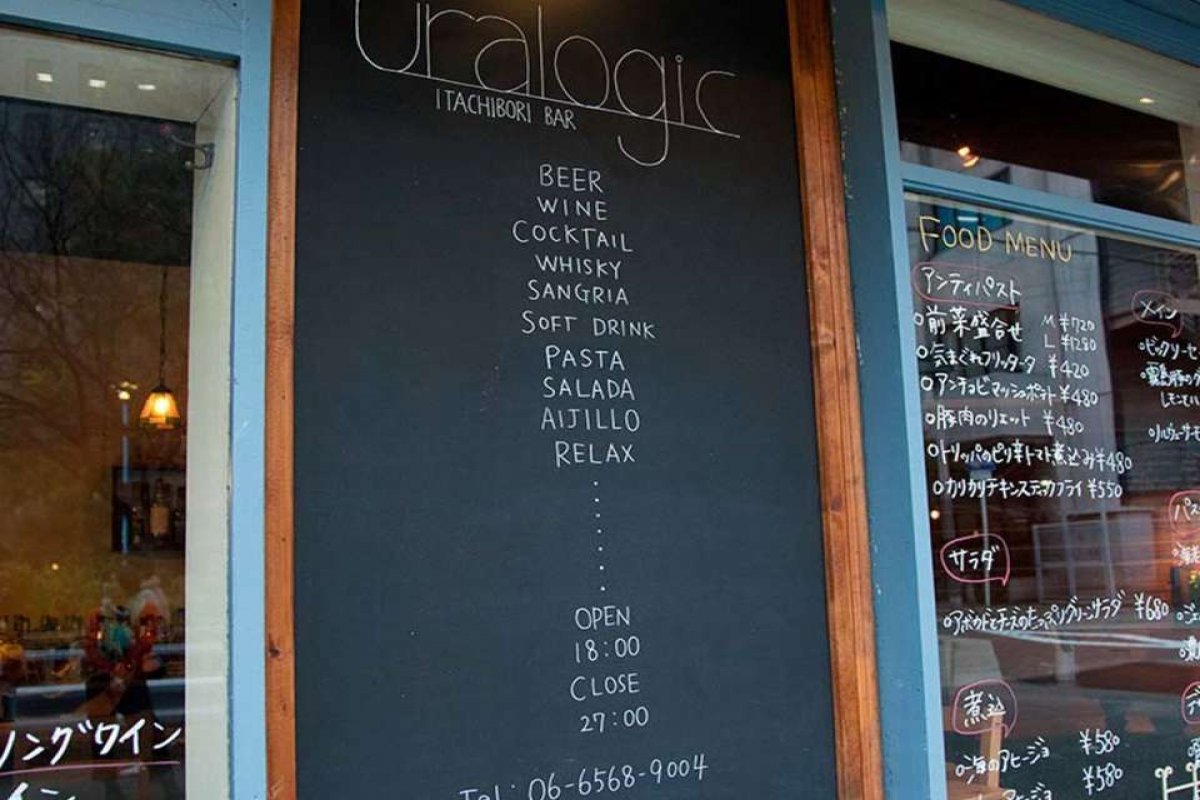 uralogic
ITACHIBORI BAR
BEER
WINE
COCKTAIL
WHISKY
SANGRIA
SOFT DRINK
PASTA
SALADA
AIJILLO
RELAX
OPEN
18:00
CLOSE
27:00
Tel: 06-6568-9004
FOOD MENU
アンティパスト
前菜盛合せ M ¥720
L ¥1280
気まぐれフリッタータ ¥420
アンチョビマッシュポテト ¥480
豚肉のリエット ¥480
トリッパのピリ辛トマト煮込み ¥480
カリカリチキンスティックフライ ¥550
サラダ
アボカドとチーズのたっぷりグリーンサラダ ¥680
煮込
海のアヒージョ ¥580
アヒージョ ¥580
メイン
ングワイン
イン